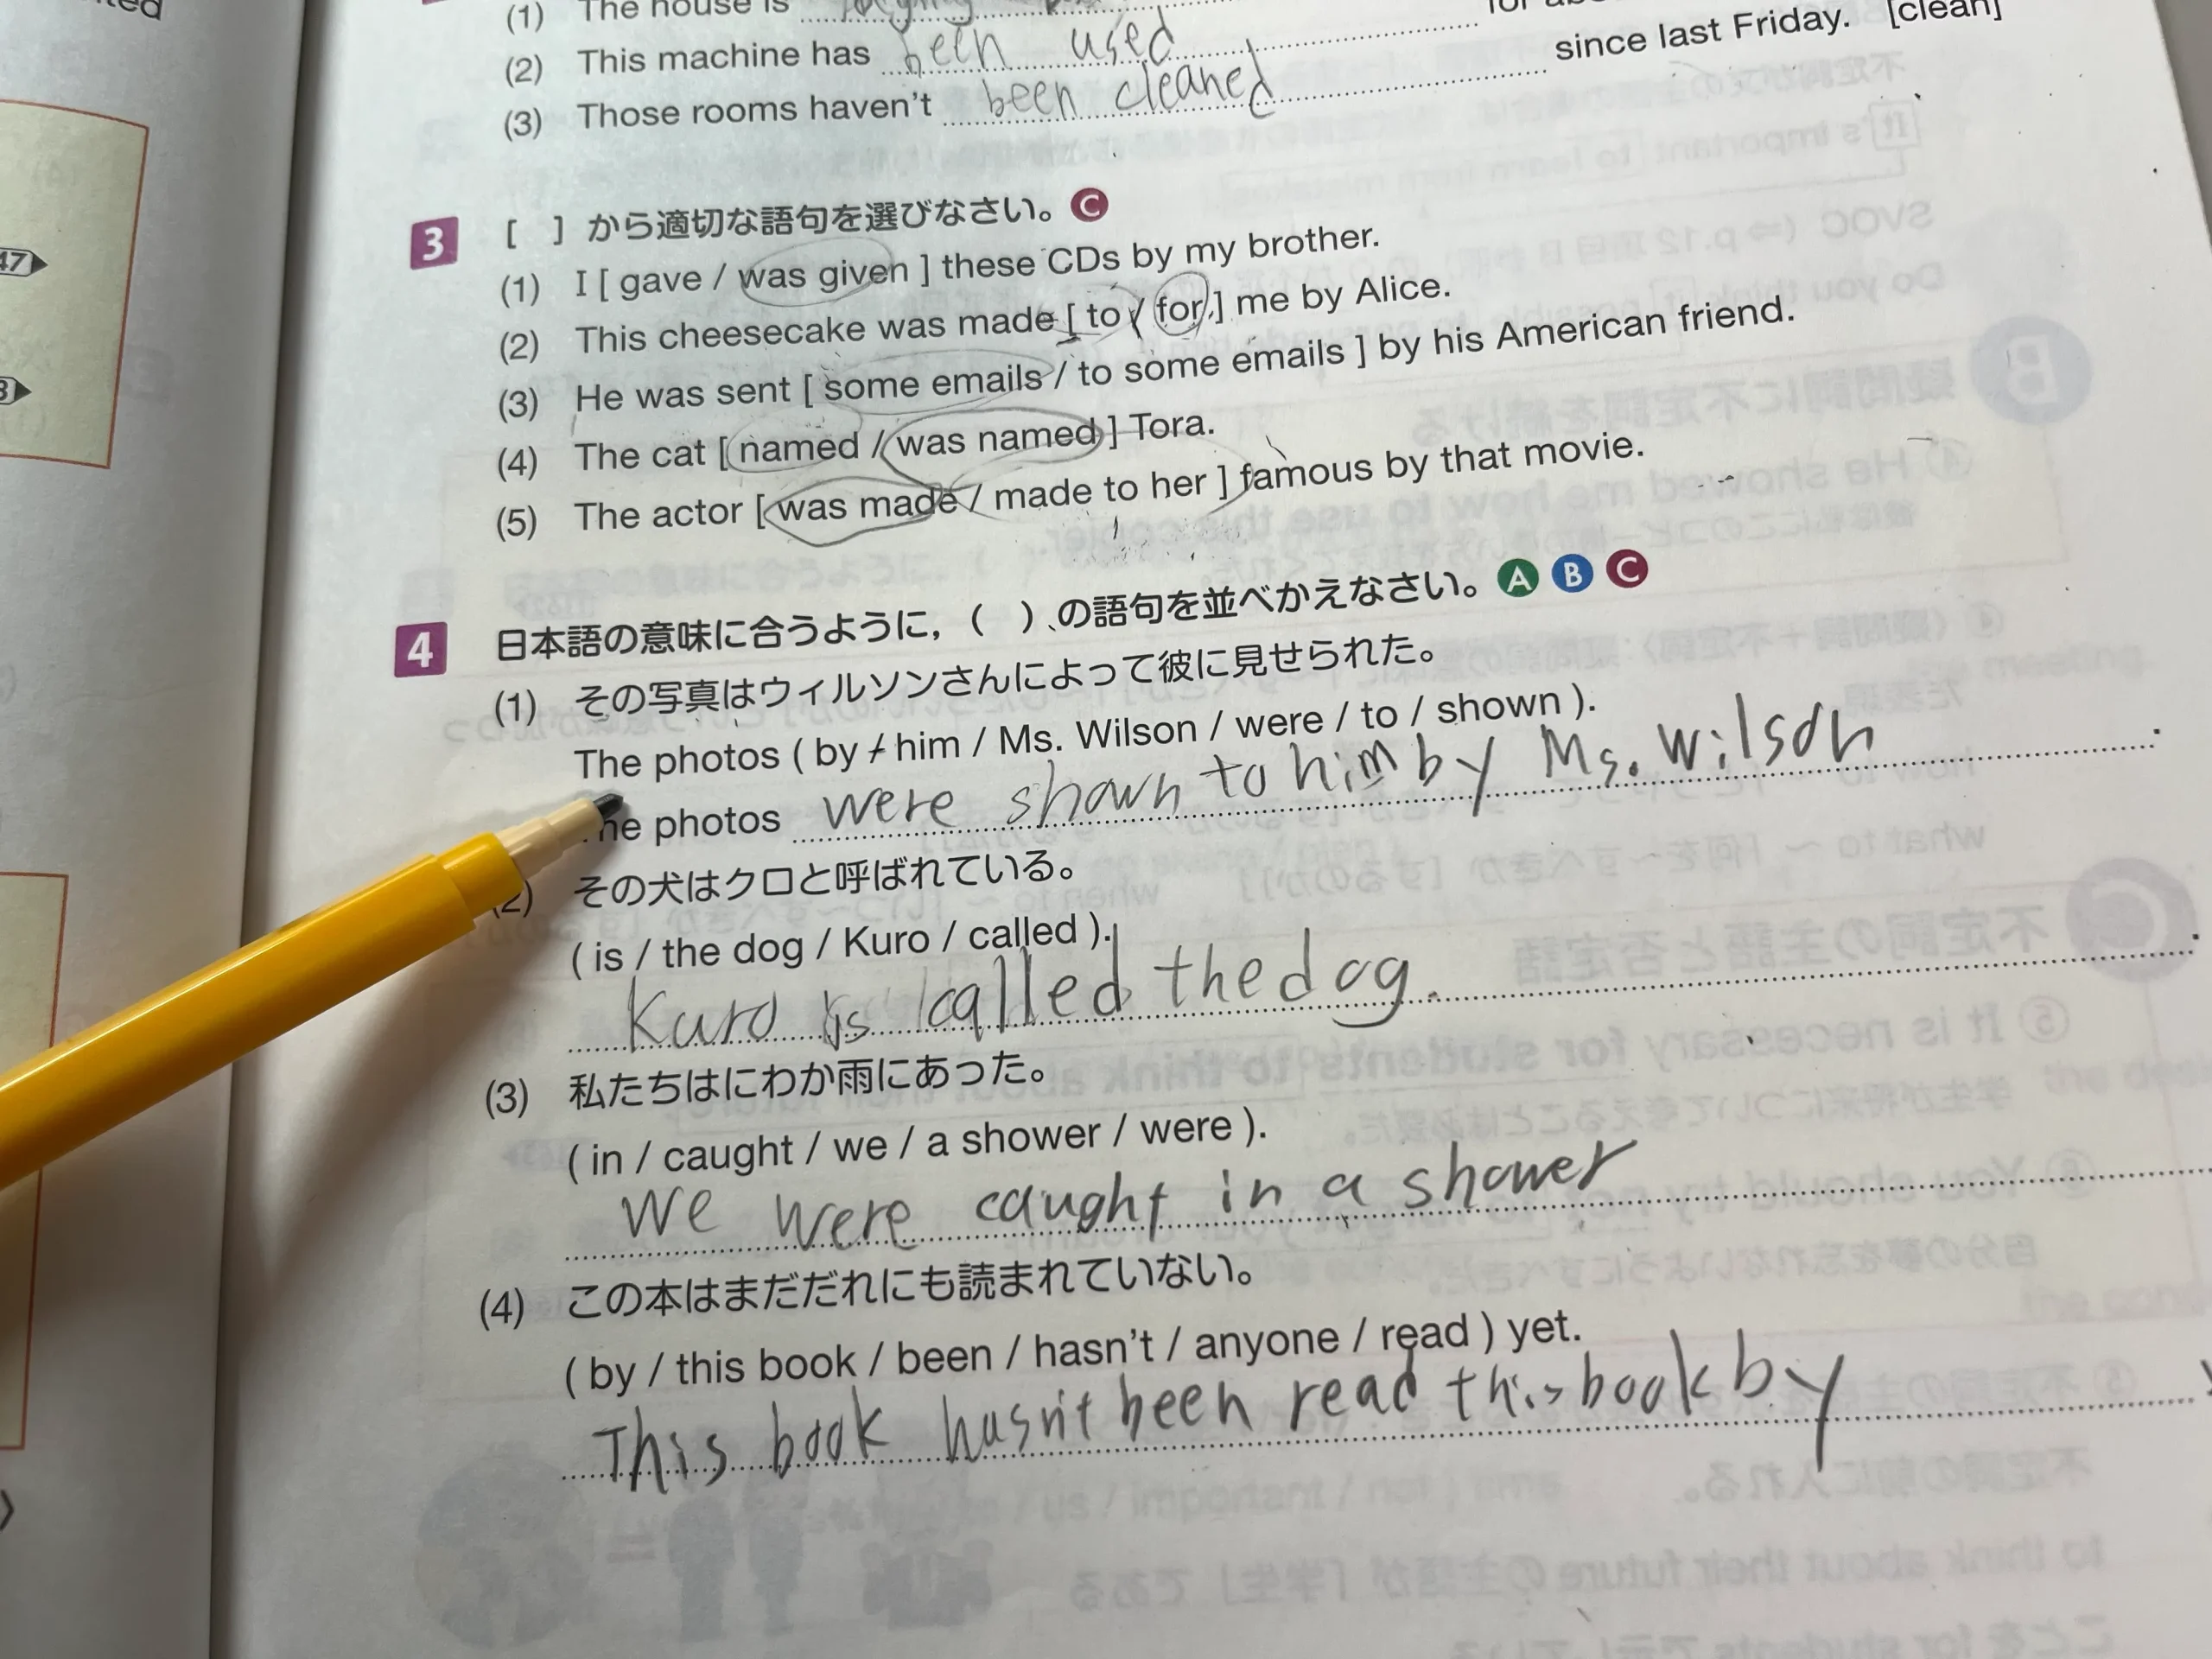 (1) The house is
(2) This machine has been used
(3) Those rooms haven't been cleaned since last Friday. [clean]
3 [ ] から適切な語句を選びなさい。 C
(1) I [ gave / was given ] these CDs by my brother.
(2) This cheesecake was made [ to / for ] me by Alice.
(3) He was sent [ some emails / to some emails ] by his American friend.
(4) The cat [ named / was named ] Tora.
(5) The actor [ was made / made to her ] famous by that movie.
4 日本語の意味に合うように, ( ) の語句を並べかえなさい。 A B C
(1) その写真はウィルソンさんによって彼に見せられた。
The photos ( by / him / Ms. Wilson / were / to / shown ).
The photos were shown to him by Ms. Wilson.
(2) その犬はクロと呼ばれている。
( is / the dog / Kuro / called ).
Kuro is called the dog.
(3) 私たちはにわか雨にあった。
( in / caught / we / a shower / were ).
We were caught in a shower
(4) この本はまだだれにも読まれていない。
( by / this book / been / hasn't / anyone / read ) yet.
This book hasn't been read this book by